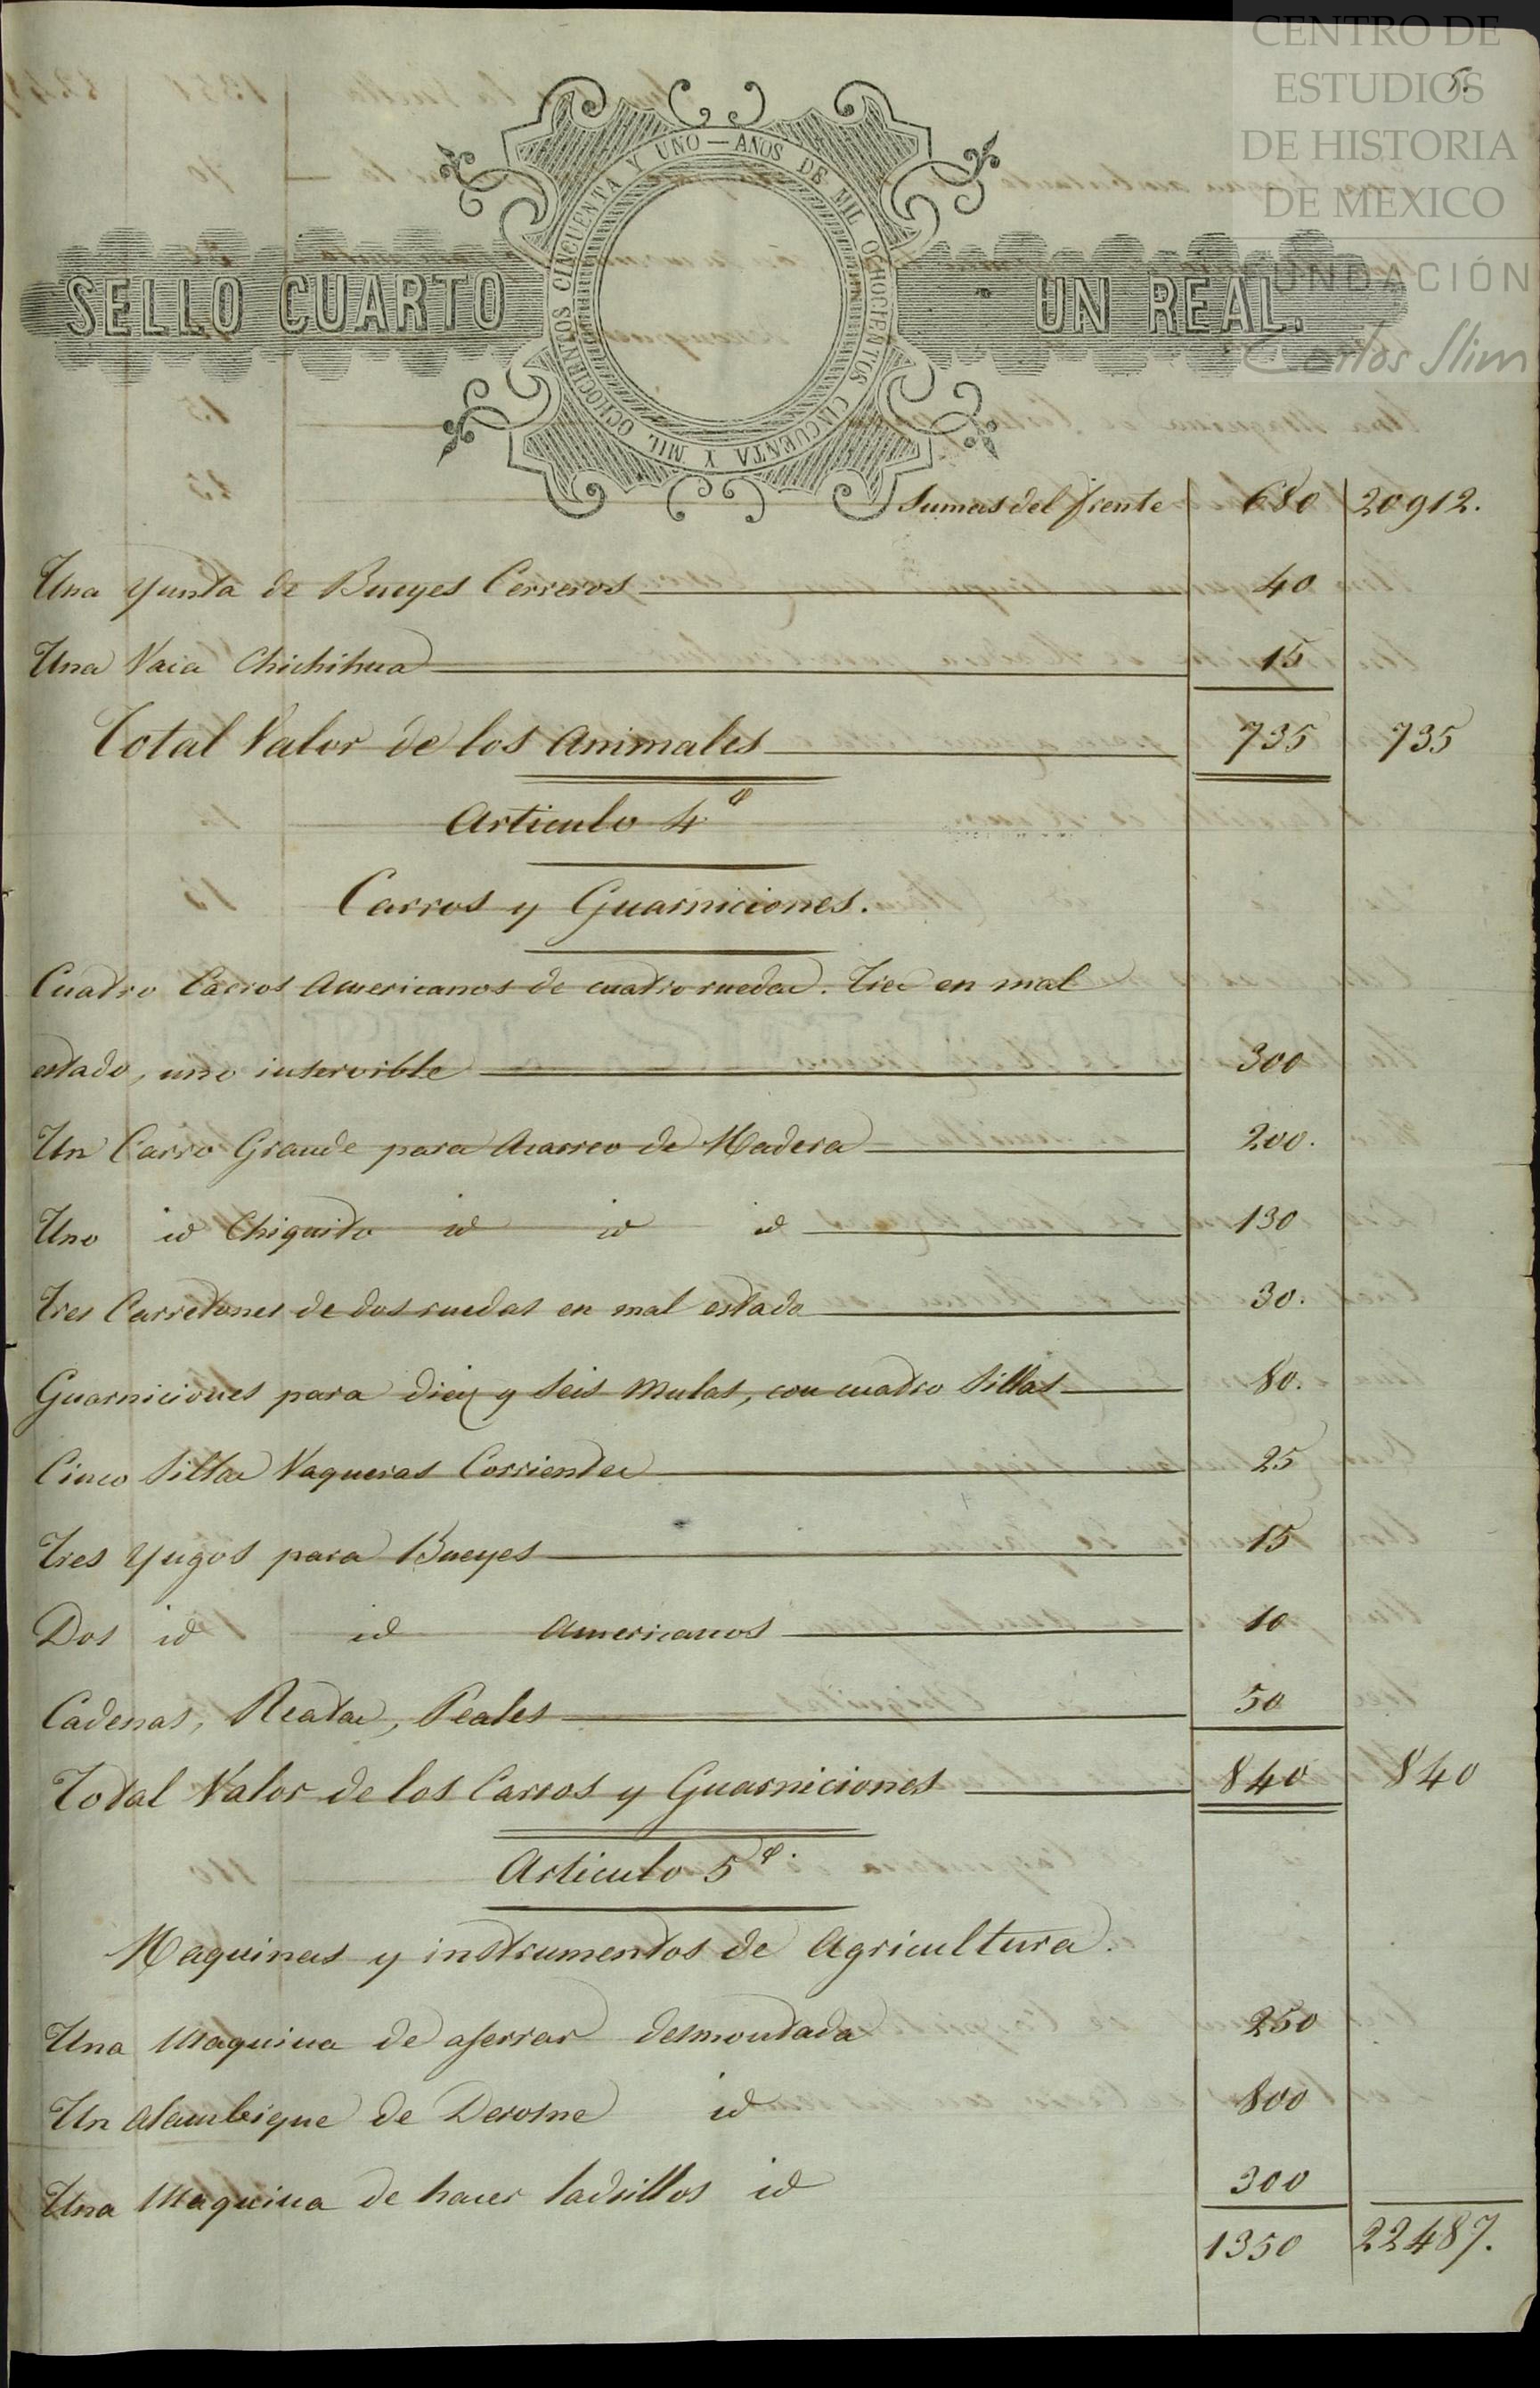 CENTRO DE
ESTUDIOS
DE HISTORIA
DE MEXICO
FUNDACIÓN
Carlos Slim
5.
SELLO CUARTO
AÑOS DE MIL OCHOCIENTOS CINCUENTA Y MIL OCHOCIENTOS CINCUENTA Y UNO
UN REAL.
Sumas del frente 680 20912.
Una Yunta de Bueyes Cerreros 40
Una Vaca Chichihua 15
Total Valor de los Animales 735 735
Articulo 4º
Carros y Guarniciones.
Cuatro Carros Americanos de cuatro ruedas. Tres en mal
estado, uno inservible 300
Un Carro Grande para Acarreo de Madera 200.
Uno id Chiquito id id id 130
Tres Carretones de dos ruedas en mal estado 30.
Guarniciones para diez y seis Mulas, con cuatro Sillas 80.
Cinco Sillas Vaqueras Corrientes 25
Tres Yugos para Bueyes 15
Dos id id Americanos 10
Cadenas, Reatas, Peales 50
Total Valor de los Carros y Guarniciones 840 840
Articulo 5º.
Maquinas y instrumentos de Agricultura.
Una Maquina de aserrar desmontada 250
Un Alambique de Derosne id 800
Una Maquina de hacer ladrillos id 300
1350 22487.